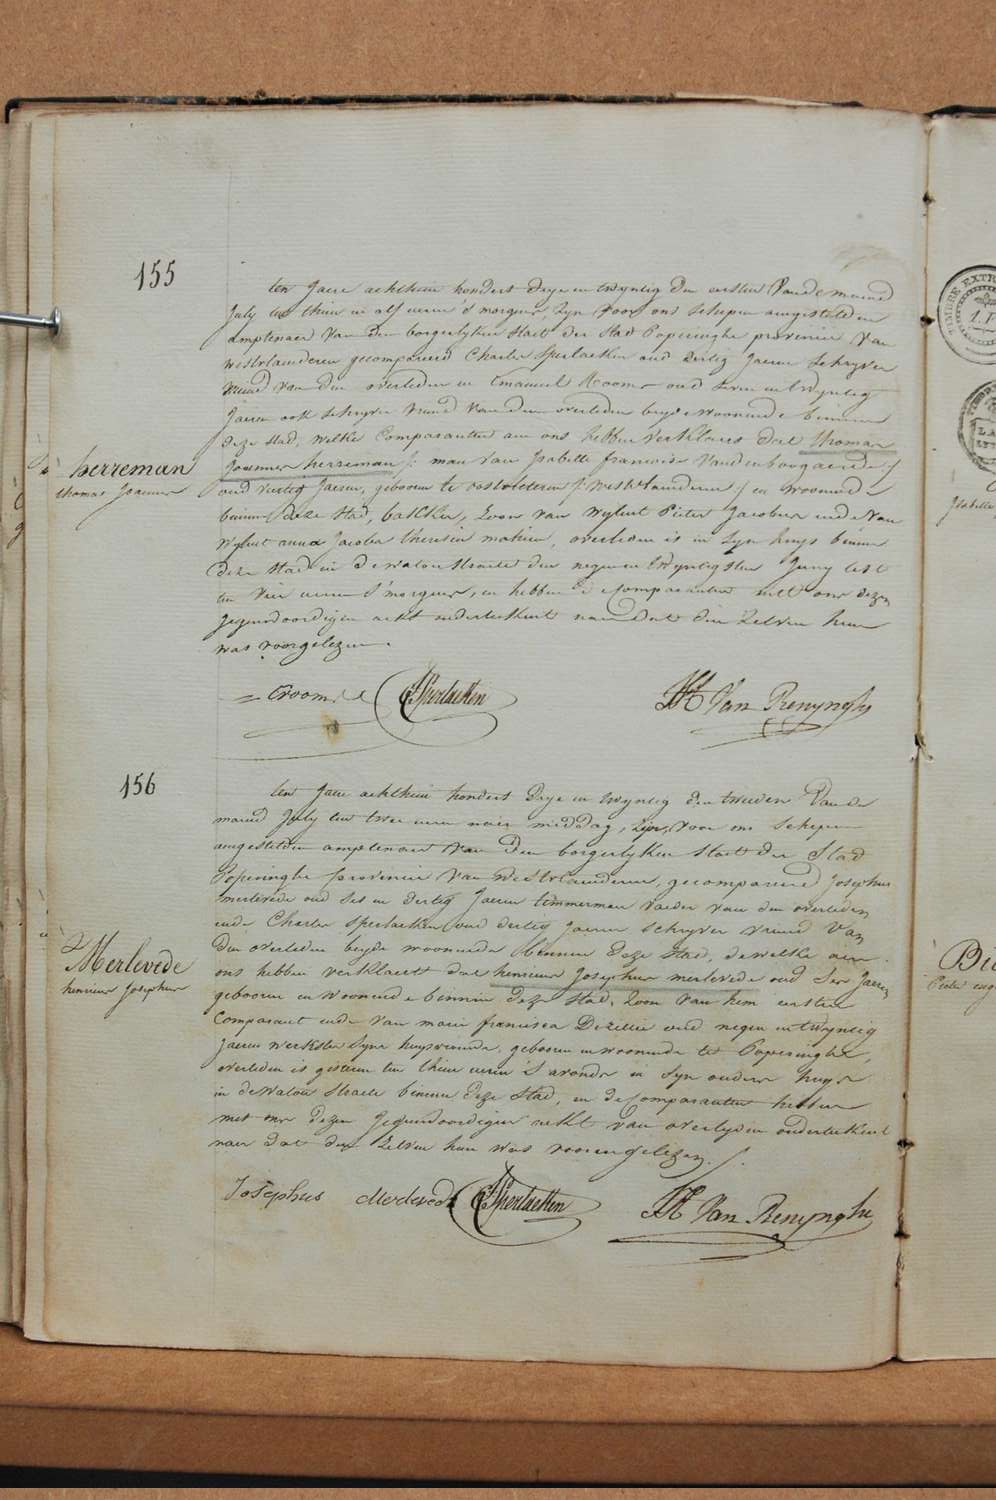 155
ten Jaere achthien hondert drye en twyntig den eersten Van de maend
July ten thien en alf uren 's morgens, zyn voor ons schepen aengestelden
amptenaer van den borgerlyken staet der stad Poperinghe provincie van
westvlaenderen gecompareerd Charles Sperlaeken oud dertig Jaeren schryver
vriend van den overleden en Emanuel Rooms oud seven en twyntig
Jaeren ook schryver vriend van den overleden beyde woonende binnen
deze stad, welke Comparanten aen ons hebben verklaert dat thomas
Joannes herreman /: man van Isabelle francisca Vandenboogaerde :/
oud viertig Jaeren, gebooren te oostvleteren /: westvlaenderen :/ en woonende
binnen deze stad, bakker, Zoon van wylent Pieter Jacobus ende van
wylent anna Jacoba theresia mahieu, overleden is in zyn huys binnen
deze stad in de watou straete den negen en twyntigsten Juny lest
ten vier uren s'morgens, en hebben de Comparanten met ons dezen
gegenwoordigen ackt onderteekent naer dat die zelven hun
was voorgelezen.
herreman
thomas Joannes
E Rooms CSperlaeken JH Van Renynghe
156
ten Jaere achthien hondert drye en twyntig den tweeden Van de
maend July ten twee uren naer middag, zyn voor ons schepen
aengestelden amptenaer van den borgerlyken staet der Stad
Poperinghe provincie van westvlaenderen, gecompareerd Josephus
merlevede oud ses en dertig Jaeren timmerman vader van den overleden
ende Charles Sperlaeken oud dertig Jaeren schryver vriend Van
den overleden beyde woonende binnen deze stad, dewelke aen
ons hebben verklaert dat henricus Josephus merlevede oud ses Jaeren
gebooren en woonende binnen deze stad, zoon van hem eersten
Comparant ende van marie francisca Dezittere oud negen en twyntig
Jaeren werkster zyne huysvrouwe, gebooren en woonende te Poperinghe,
overleden is gisteren ten thien uren 's avonds in syn ouders huys
in de watou straete binnen deze stad, en de Comparanten hebben
met ons dezen gegenwoordigen ackt van overlyden onderteekent
naer dat den zelven hun was voorengelezen.
Merlevede
henricus Josephus
Josephus Merlevede CSperlaeken JH Van Renynghe
TIMBRE EXTR
Isabelle
Pieter eug